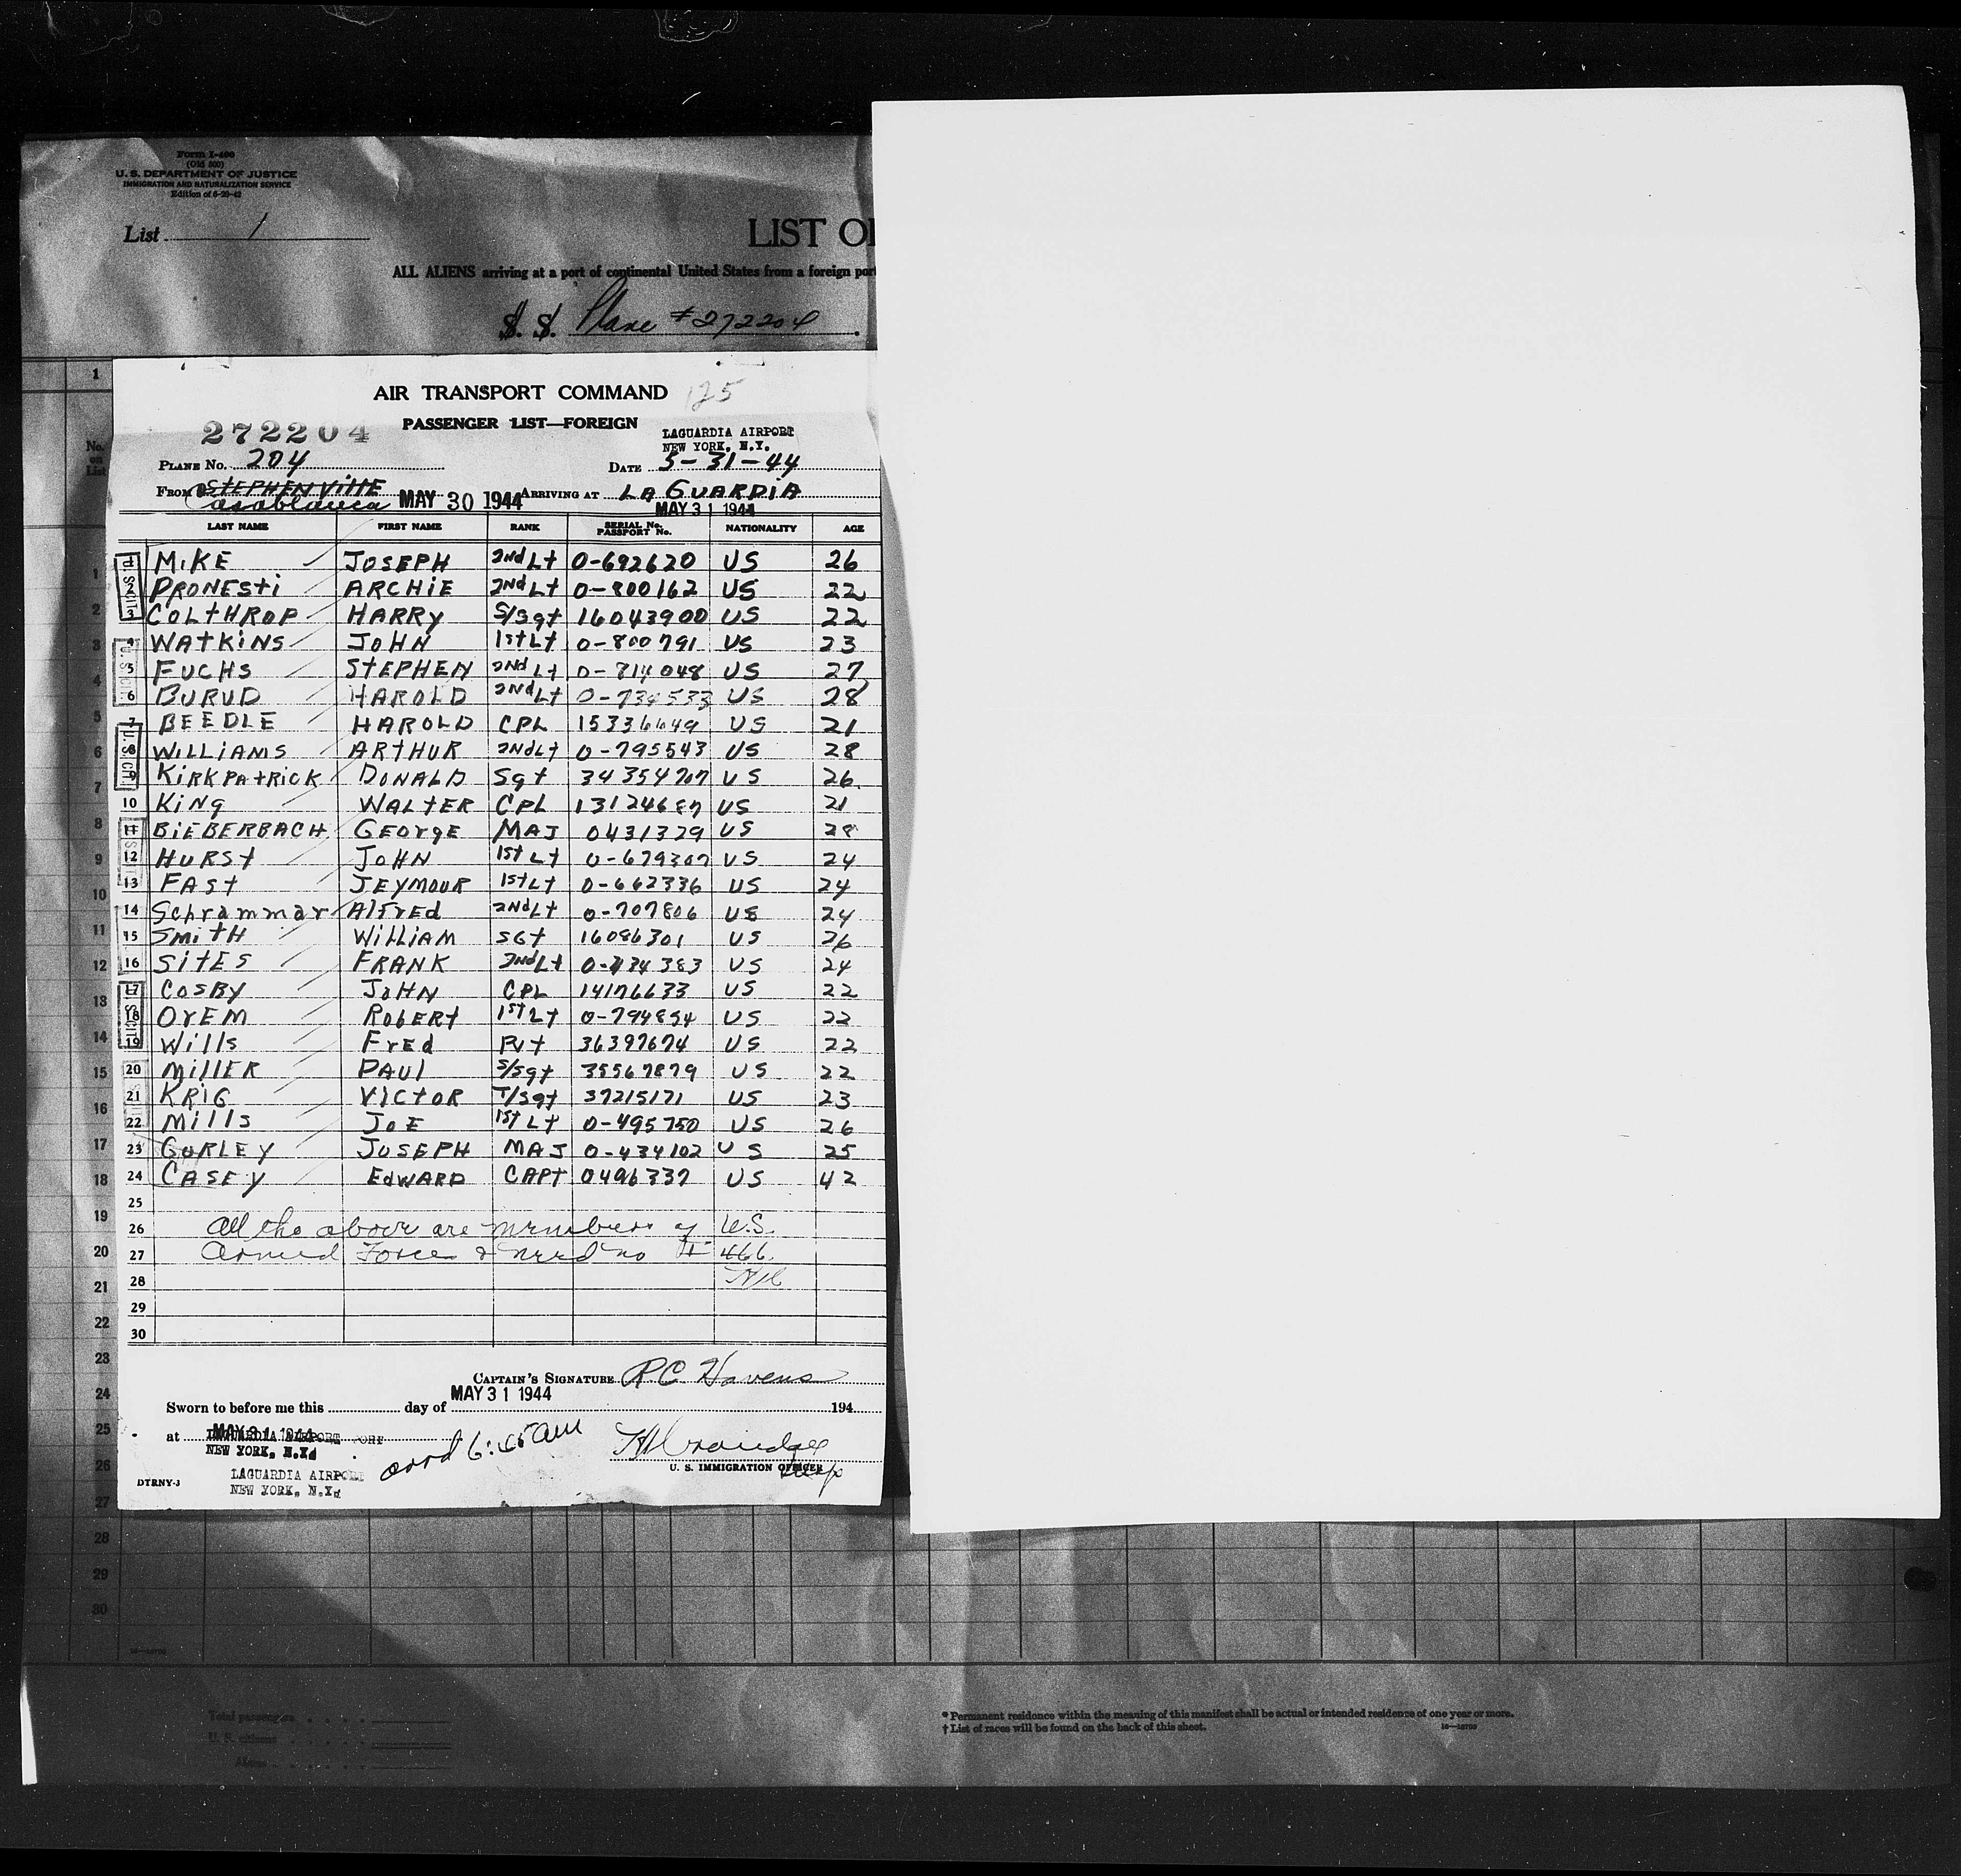 Form I-400
(Old 500)
U. S. DEPARTMENT OF JUSTICE
IMMIGRATION AND NATURALIZATION SERVICE
Edition of 6-20-42
List 1
LIST O
ALL ALIENS arriving at a port of continental United States from a foreign port
S. S. Plane #272204
AIR TRANSPORT COMMAND 125
272204 PASSENGER LIST—FOREIGN
LAGUARDIA AIRPORT
NEW YORK, N.Y.
PLANE NO. 204 DATE 5-31-44
FROM STEPHENVILLE Casablanca MAY 30 1944 ARRIVING AT LA GUARDIA
MAY 31 1944
LAST NAME FIRST NAME RANK SERIAL No. PASSPORT No. NATIONALITY AGE
1 MIKE JOSEPH 2nd Lt 0-692620 US 26
2 PRONESTI ARCHIE 2nd Lt 0-800162 US 22
3 COLTHROP HARRY S/Sgt 16043900 US 22
4 WATKINS JOHN 1st Lt 0-800791 US 23
5 FUCHS STEPHEN 2nd Lt 0-814048 US 27
6 BURUD HAROLD 2nd Lt US 28
7 BEEDLE HAROLD CPL 15336649 US 21
8 WILLIAMS ARTHUR 2nd Lt 0-795543 US 28
9 KIRKPATRICK DONALD Sgt 34354707 US 26
10 KING WALTER CPL 13124687 US 21
11 BIEBERBACH GEORGE MAJ 0431329 US 28
12 HURST JOHN 1st Lt 0-679307 US 24
13 FAST JEYMOUR 1st Lt 0-662336 US 24
14 Schrammar Alfred 2nd Lt 0-707806 US 24
15 SMITH WILLIAM SGT 16086301 US 26
16 SITES FRANK 2nd Lt 0-734383 US 24
17 COSBY JOHN CPL 14176633 US 22
18 OREM ROBERT 1st Lt 0-794854 US 22
19 Wills Fred Pvt 36397674 US 22
20 MILLER PAUL S/Sgt 35567879 US 22
21 KRIG VICTOR T/Sgt 37215171 US 23
22 Mills JOE 1st Lt 0-495750 US 26
23 GURLEY JOSEPH MAJ 0-434102 US 25
24 CASEY EDWARD CAPT 0496337 US 42
25
26 All the above are members of U.S.
27 Armed Force & need no I 466.
28
29
30
CAPTAIN'S SIGNATURE R.C. Havens
MAY 31 1944
Sworn to before me this day of 194
at MAY 31 1944
LAGUARDIA AIRPORT
NEW YORK, N.Y.
arrd 6:45 AM
U. S. IMMIGRATION OFFICER
LAGUARDIA AIRPORT
DTRNY-J
NEW YORK, N.Y.
Total passengers
U. S. citizens
Aliens
* Permanent residence within the meaning of this manifest shall be actual or intended residence of one year or more.
† List of races will be found on the back of this sheet.